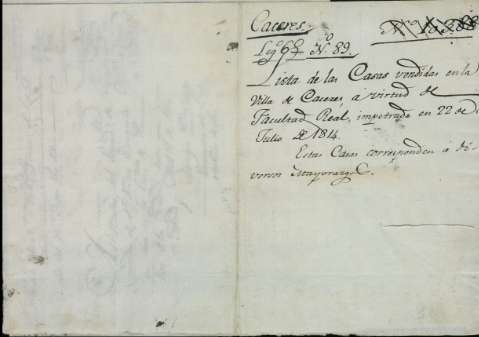 Caceres.
Leg.º 68 N.º 89.
Lista de las Casas vendidas en la
Villa de Caceres, a virtud de
Facultad Real, impetrada en 22 de
Julio de 1814.
Estas Casas corresponden a di-
versos Mayorazg.